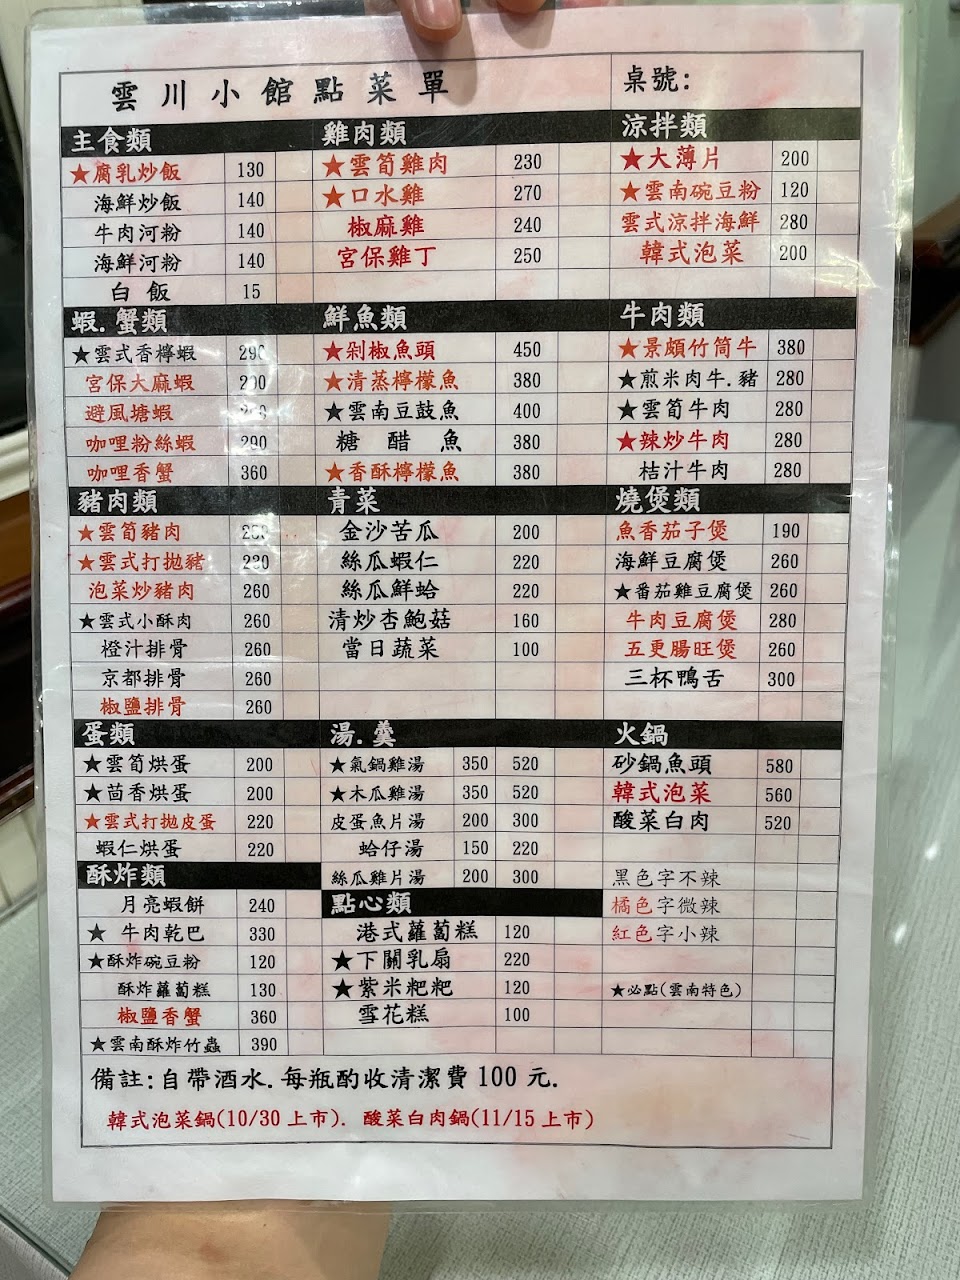 雲川小館點菜單
桌號:
主食類
★腐乳炒飯 130
海鮮炒飯 140
牛肉河粉 140
海鮮河粉 140
白飯 15
雞肉類
★雲筍雞肉 230
★口水雞 270
椒麻雞 240
宮保雞丁 250
涼拌類
★大薄片 200
★雲南碗豆粉 120
雲式涼拌海鮮 280
韓式泡菜 200
蝦.蟹類
★雲式香檸蝦 290
宮保大麻蝦
避風塘蝦
咖哩粉絲蝦 290
咖哩香蟹 360
鮮魚類
★剁椒魚頭 450
★清蒸檸檬魚 380
★雲南豆鼓魚 400
糖醋魚 380
★香酥檸檬魚 380
牛肉類
★景頗竹筒牛 380
★煎米肉牛.豬 280
★雲筍牛肉 280
★辣炒牛肉 280
桔汁牛肉 280
豬肉類
★雲筍豬肉
★雲式打拋豬
泡菜炒豬肉 260
★雲式小酥肉 260
橙汁排骨 260
京都排骨 260
椒鹽排骨 260
青菜
金沙苦瓜 200
絲瓜蝦仁 220
絲瓜鮮蛤 220
清炒杏鮑菇 160
當日蔬菜 100
燒煲類
魚香茄子煲 190
海鮮豆腐煲 260
★番茄雞豆腐煲 260
牛肉豆腐煲 280
五更腸旺煲 260
三杯鴨舌 300
蛋類
★雲筍烘蛋 200
★茴香烘蛋 200
★雲式打拋皮蛋 220
蝦仁烘蛋 220
湯.羹
★氣鍋雞湯 350 520
★木瓜雞湯 350 520
皮蛋魚片湯 200 300
蛤仔湯 150 220
絲瓜雞片湯 200 300
火鍋
砂鍋魚頭 580
韓式泡菜 560
酸菜白肉 520
黑色字不辣
橘色字微辣
紅色字小辣
★必點(雲南特色)
酥炸類
月亮蝦餅 240
★牛肉乾巴 330
★酥炸碗豆粉 120
酥炸蘿蔔糕 130
椒鹽香蟹 360
★雲南酥炸竹蟲 390
點心類
港式蘿蔔糕 120
★下關乳扇 220
★紫米粑粑 120
雪花糕 100
備註:自帶酒水.每瓶酌收清潔費100元.
韓式泡菜鍋(10/30上市). 酸菜白肉鍋(11/15上市)